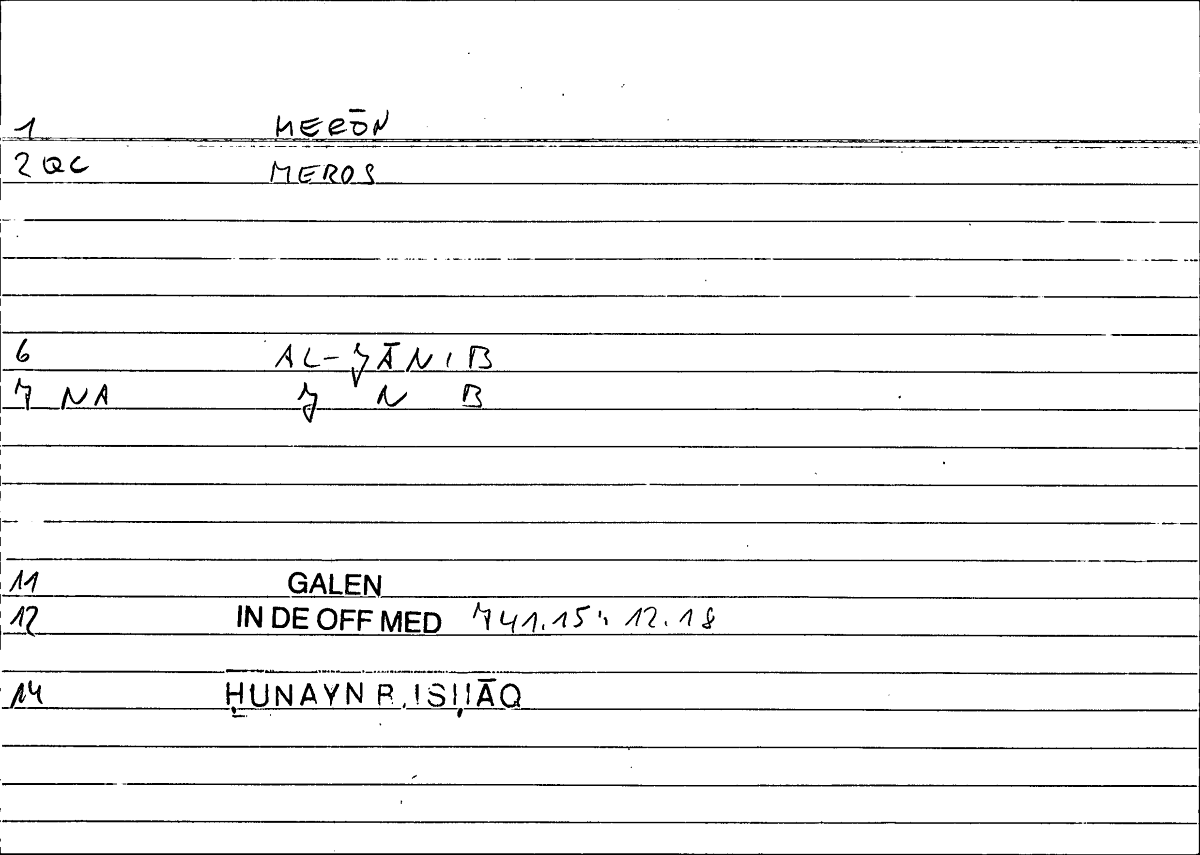 1 MERŌN
2 QC MEROS
6 AL-ǧĀNIB
7 NA ǧ N B
11 GALEN
12 IN DE OFF MED 741.15; 12.18
14 ḤUNAYN B. ISḤĀQ